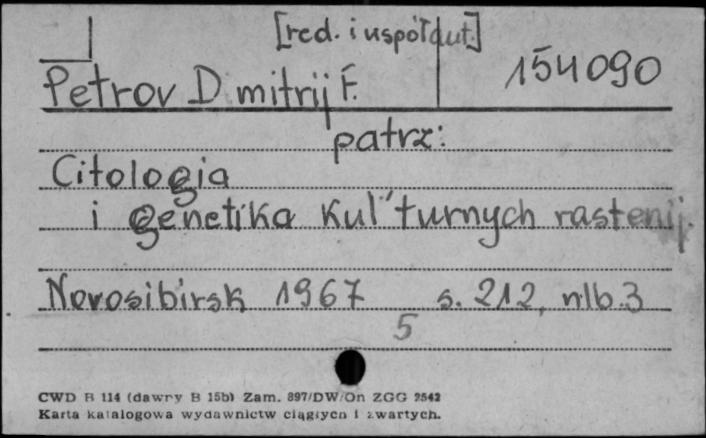 [red. i współaut.]
Petrov Dmitrij F. 154090
patrz:
Citologia
i genetika kul'turnych rastenij.
Novosibirsk 1967 s. 212, nlb. 3
5
CWD B 114 (dawny B 15b) Zam. 897/DW/On ZGG 2542
Karta katalogowa wydawnictw ciągłych i zwartych.